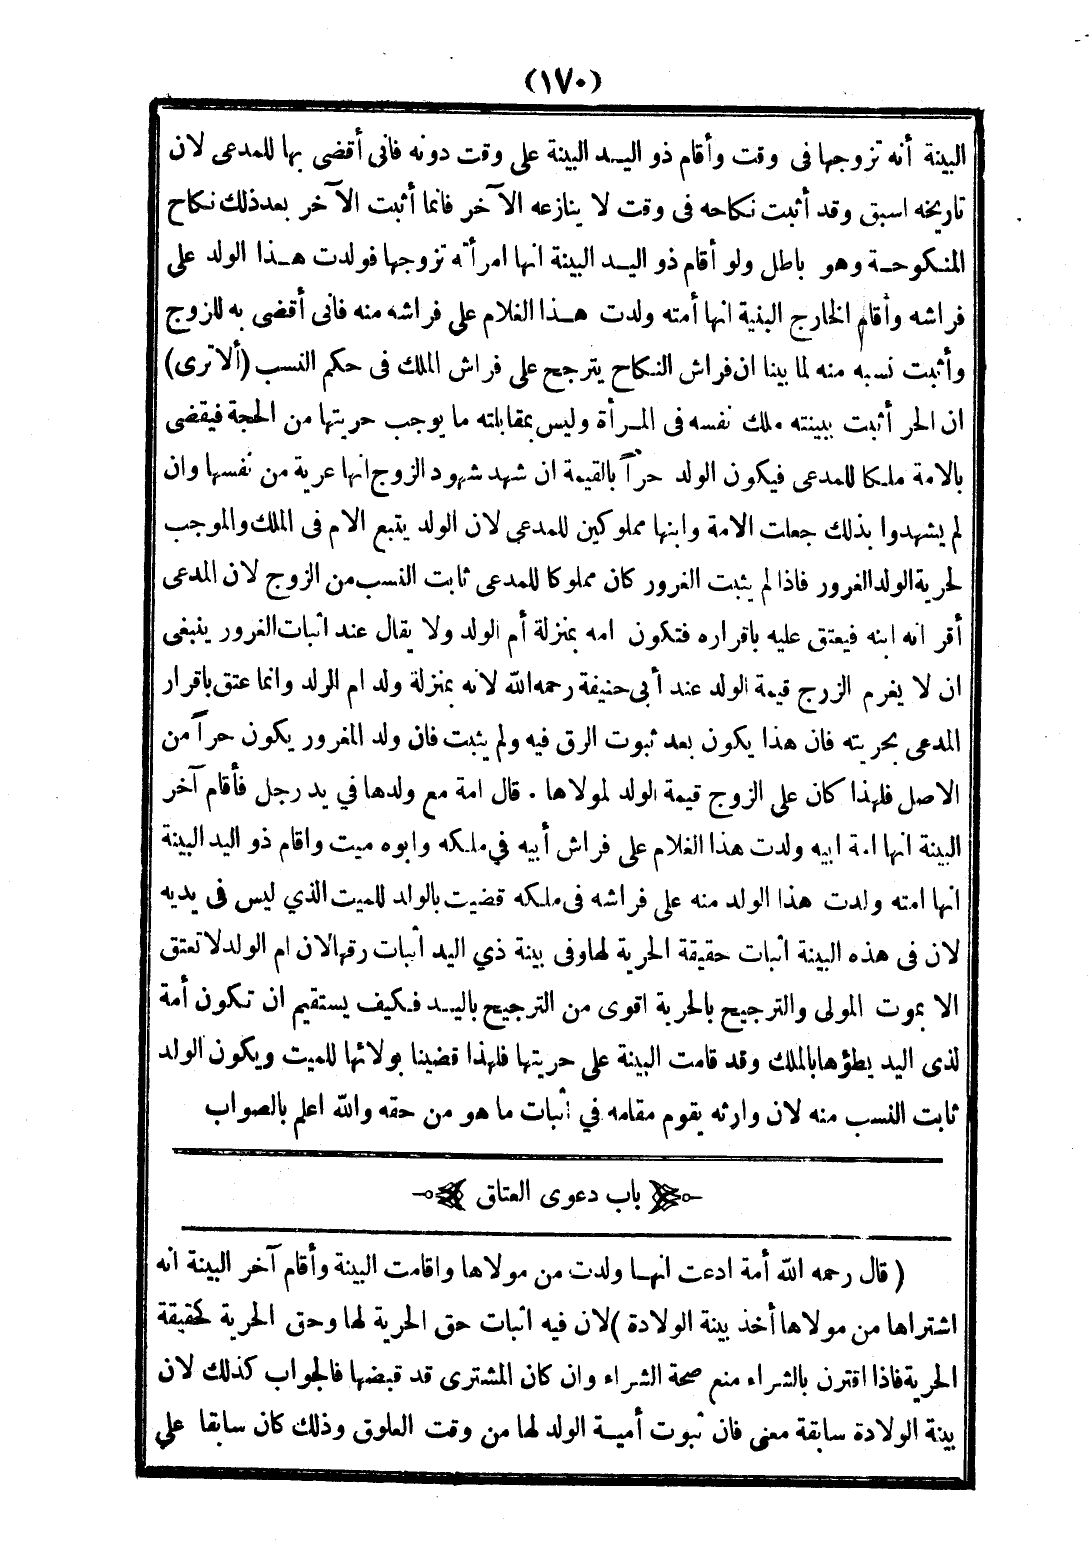 (١٧٠)
البينة أنه تزوجها فى وقت وأقام ذو اليد البينة على وقت دونه فانى أقضى بها للمدعى لان
تاريخه اسبق وقد أثبت نكاحه فى وقت لا ينازعه الآخر فانما أثبت الآخر بعد ذلك نكاح
المنكوحة وهو باطل ولو أقام ذو اليد البينة انها امرأته تزوجها فولدت هذا الولد على
فراشه وأقام الخارج البنية انها أمته ولدت هذا الغلام على فراشه منه فانى أقضى به للزوج
وأثبت نسبه منه لما بينا ان فراش النكاح يترجح على فراش الملك فى حكم النسب (ألا ترى)
ان الحر أثبت ببينته ملك نفسه فى المرأة وليس بمقابلته ما يوجب حريتها من الحجة فيقضى
بالامة ملكا للمدعى فيكون الولد حرآ بالقيمة ان شهد شهود الزوج انها عرية من نفسها وان
لم يشهدوا بذلك جعلت الامة وابنها مملوكين للمدعى لان الولد يتبع الام فى الملك والموجب
لحرية الولد الغرور فاذا لم يثبت الغرور كان مملوكا للمدعى ثابت النسب من الزوج لان المدعى
أقر انه ابنه فيعتق عليه باقراره فتكون امه بمنزلة أم الولد ولا يقال عند اثبات الغرور ينبغى
ان لا يغرم الزرج قيمة الولد عند أبى حنيفة رحمه الله لانه بمنزلة ولد ام الرلد وانما عتق باقرار
المدعى بحريته فان هذا يكون بعد ثبوت الرق فيه ولم يثبت فان ولد المغرور يكون حرآ من
الاصل فلهذا كان على الزوج قيمة الولد لمولاها . قال امة مع ولدها في يد رجل فأقام آخر
البينة انها امة ابيه ولدت هذا الغلام على فراش أبيه في ملكه وابوه ميت واقام ذو اليد البينة
انها امته ولدت هذا الولد منه على فراشه فى ملكه قضيت بالولد للميت الذي ليس فى يديه
لان فى هذه البينة اثبات حقيقة الحرية لها وفى بينة ذي اليد اثبات رقها لان ام الولد لا تعتق
الا بموت المولى والترجيح بالحرية اقوى من الترجيح باليد فكيف يستقيم ان تكون أمة
لذى اليد يطؤها بالملك وقد قامت البينة على حريتها فلهذا قضينا بولائها للميت ويكون الولد
ثابت النسب منه لان وارثه يقوم مقامه في اثبات ما هو من حقه والله اعلم بالصواب
باب دعوى العتاق
( قال رحمه الله أمة ادعت انها ولدت من مولاها واقامت البينة وأقام آخر البينة انه
اشتراها من مولاها أخذ بينة الولادة )لان فيه اثبات حق الحرية لها وحق الحرية كحقيقة
الحرية فاذا اقترن بالشراء منع صحة الشراء وان كان المشترى قد قبضها فالجواب كذلك لان
بينة الولادة سابقة معنى فان ثبوت أمية الولد لها من وقت العلوق وذلك كان سابقا على